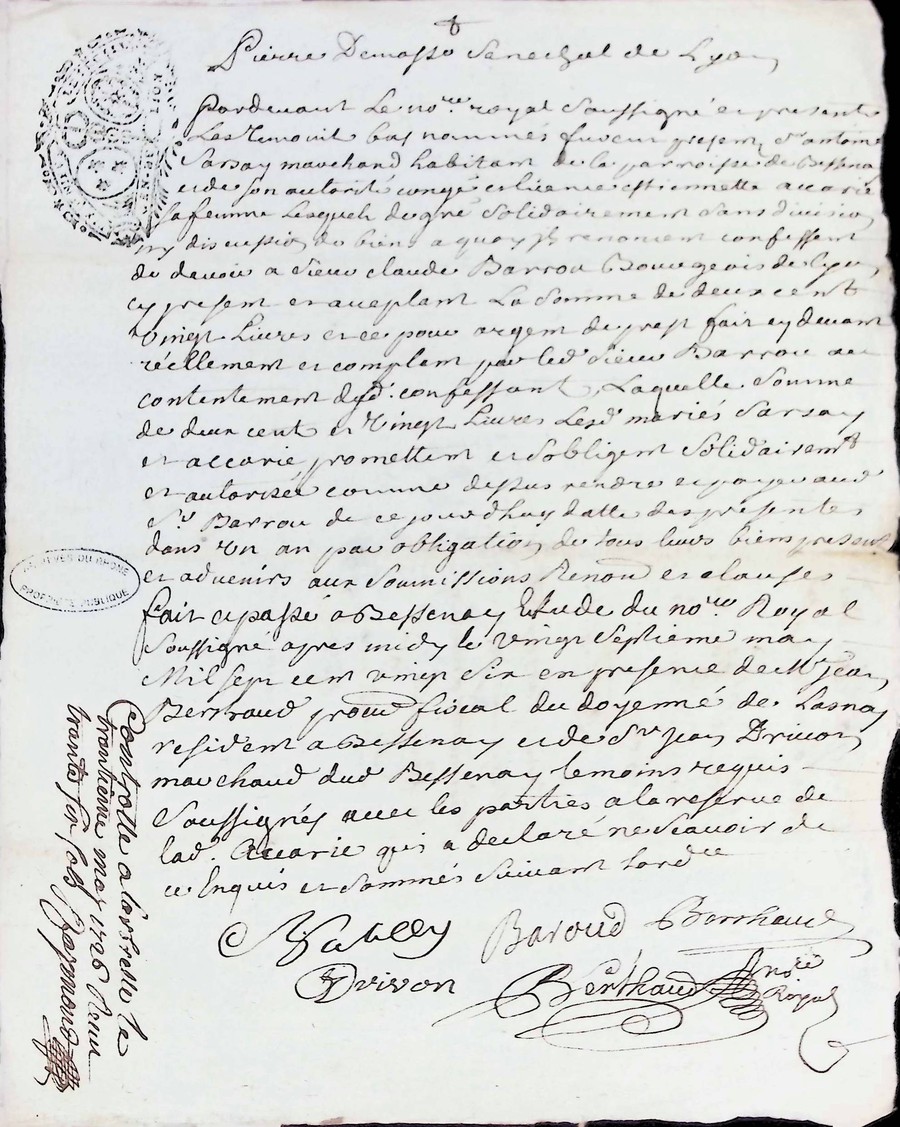 Pierre Demasso Senechal de Lyon
Pardevant Le no.re royal Soussigné et present
Les temoins bas nommés furent present S.r antoine
Sarsay marchand habitant de la parroisse de Bessenay
et de son autorité congé et licence accarie
sa femme Lesquels de gré Solidairement Sans division
ny discussion de biens a quoy ils renoncent confessent
de devoir a Sieur claude Barrou Bourgeois de Lyon
cy present et acceptant La Somme de deux cent
vingt Livres et ce pour argent de prest fait cy devant
réellement et comptant par led Sieur Barrou au
contentement desd. confessant, Laquelle Somme
de deux cent et vingt Livres Lesd mariés Sarsay
et accarie promettent et Sobligent Solidairemt
et autorisée comme dessus rendre et payer aud
S.r Barrou de ce jourdhuy datte des presentes
dans un an par obligation de tous leurs biens presents
et advenirs aux Soumissions Renon et clauses
fait et passé a Bessenay Etude du no.re Royal
Soussigné apres midy le vingt Septieme may
Mil sept cent vingt Six en presence de M.r jean
Berthaud procu fiscal du doyenné de Lasnay
resident a Bessenay et de S.r jean Drivon
marchand dud Bessenay temoins requis
Soussignés avec les parties a la reserve de
lad. Accarie qui a declaré ne Scavoir de
ce Enquis et Sommés Suivant lordre
Baroud Berthaud
Drivon Berthaud no.re Royal
Controllé a Larbresle le
trentieme may 1726 Reçu
trante six sols
ARCHIVES DU RHONE
PROPRIÉTÉ PUBLIQUE